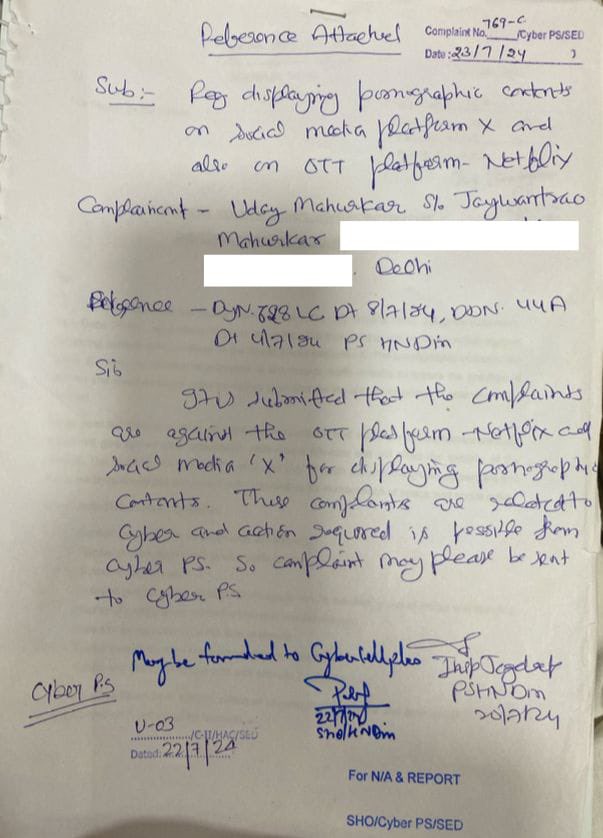 Reference Attached
Complaint No. 769-C /Cyber PS/SED
Date : 23/7/24 )
Sub:- Reg displaying pornographic contents
on social media platform X and
also on OTT platform - Netflix
Complainant - Uday Mahurkar S/o Jaywantrao
Mahurkar
Delhi
Reference - DyN. 728 LC Dt 8/7/24, DDN. 44A
Dt 4/7/24 PS HNDin
Sir
It is submitted that the complaints
are against the OTT platform - Netflix and
social media 'X' for displaying pornographic
contents. These complaints are related to
cyber and action required is possible from
cyber PS. So complaint may please be sent
to cyber P.S
May be forwarded to Cyber Cell pls
Cyber P.S
PSHNDin
20/7/24
22/7/24
SHO/HNDin
U-03 /C-II/HAC/SED
Dated: 22/7/24
For N/A & REPORT
SHO/Cyber PS/SED